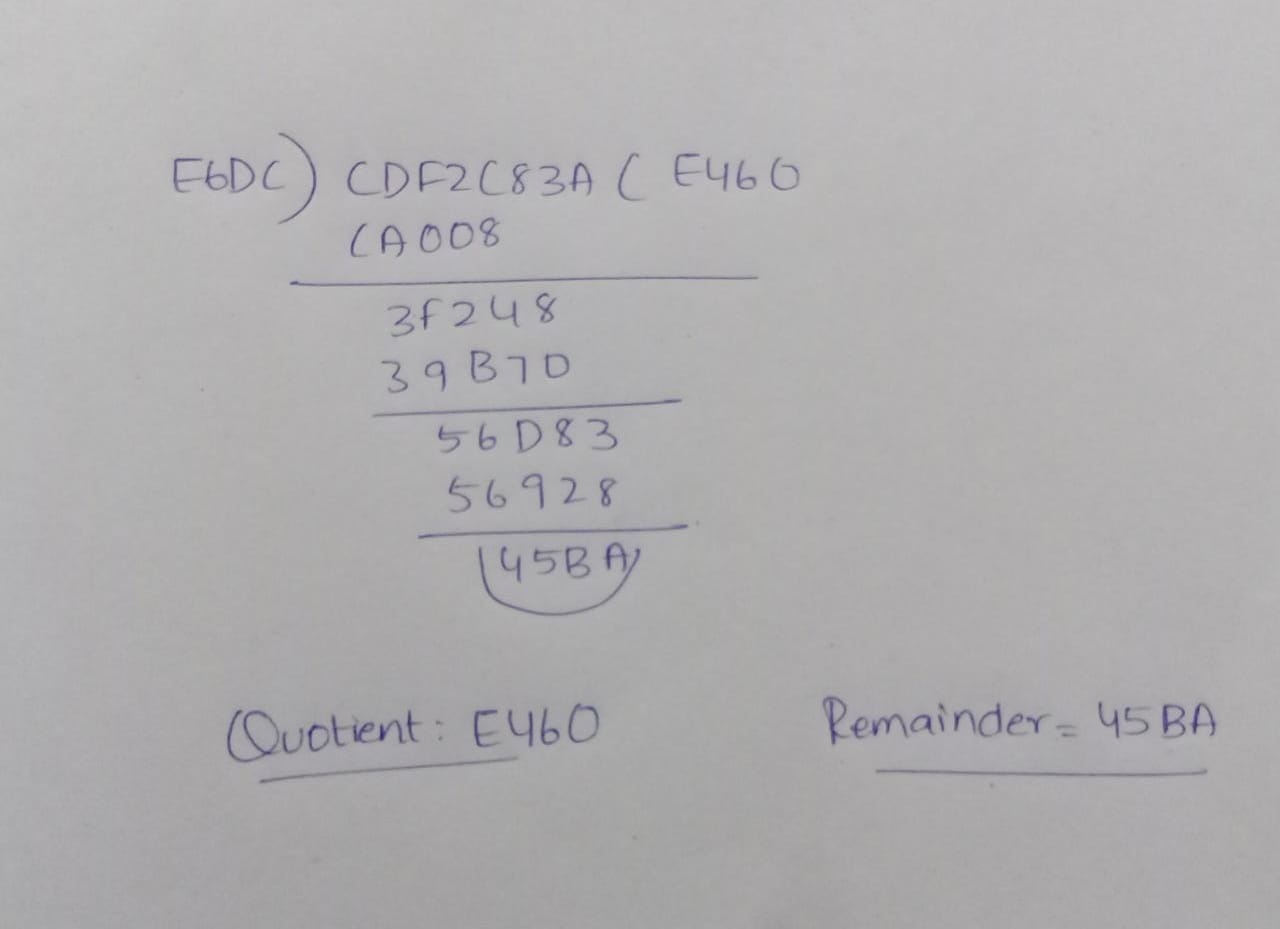 E6DC) CDF2C83A ( E460
CA008
3F248
39B70
56D83
56928
45BA
Quotient: E460
Remainder = 45BA